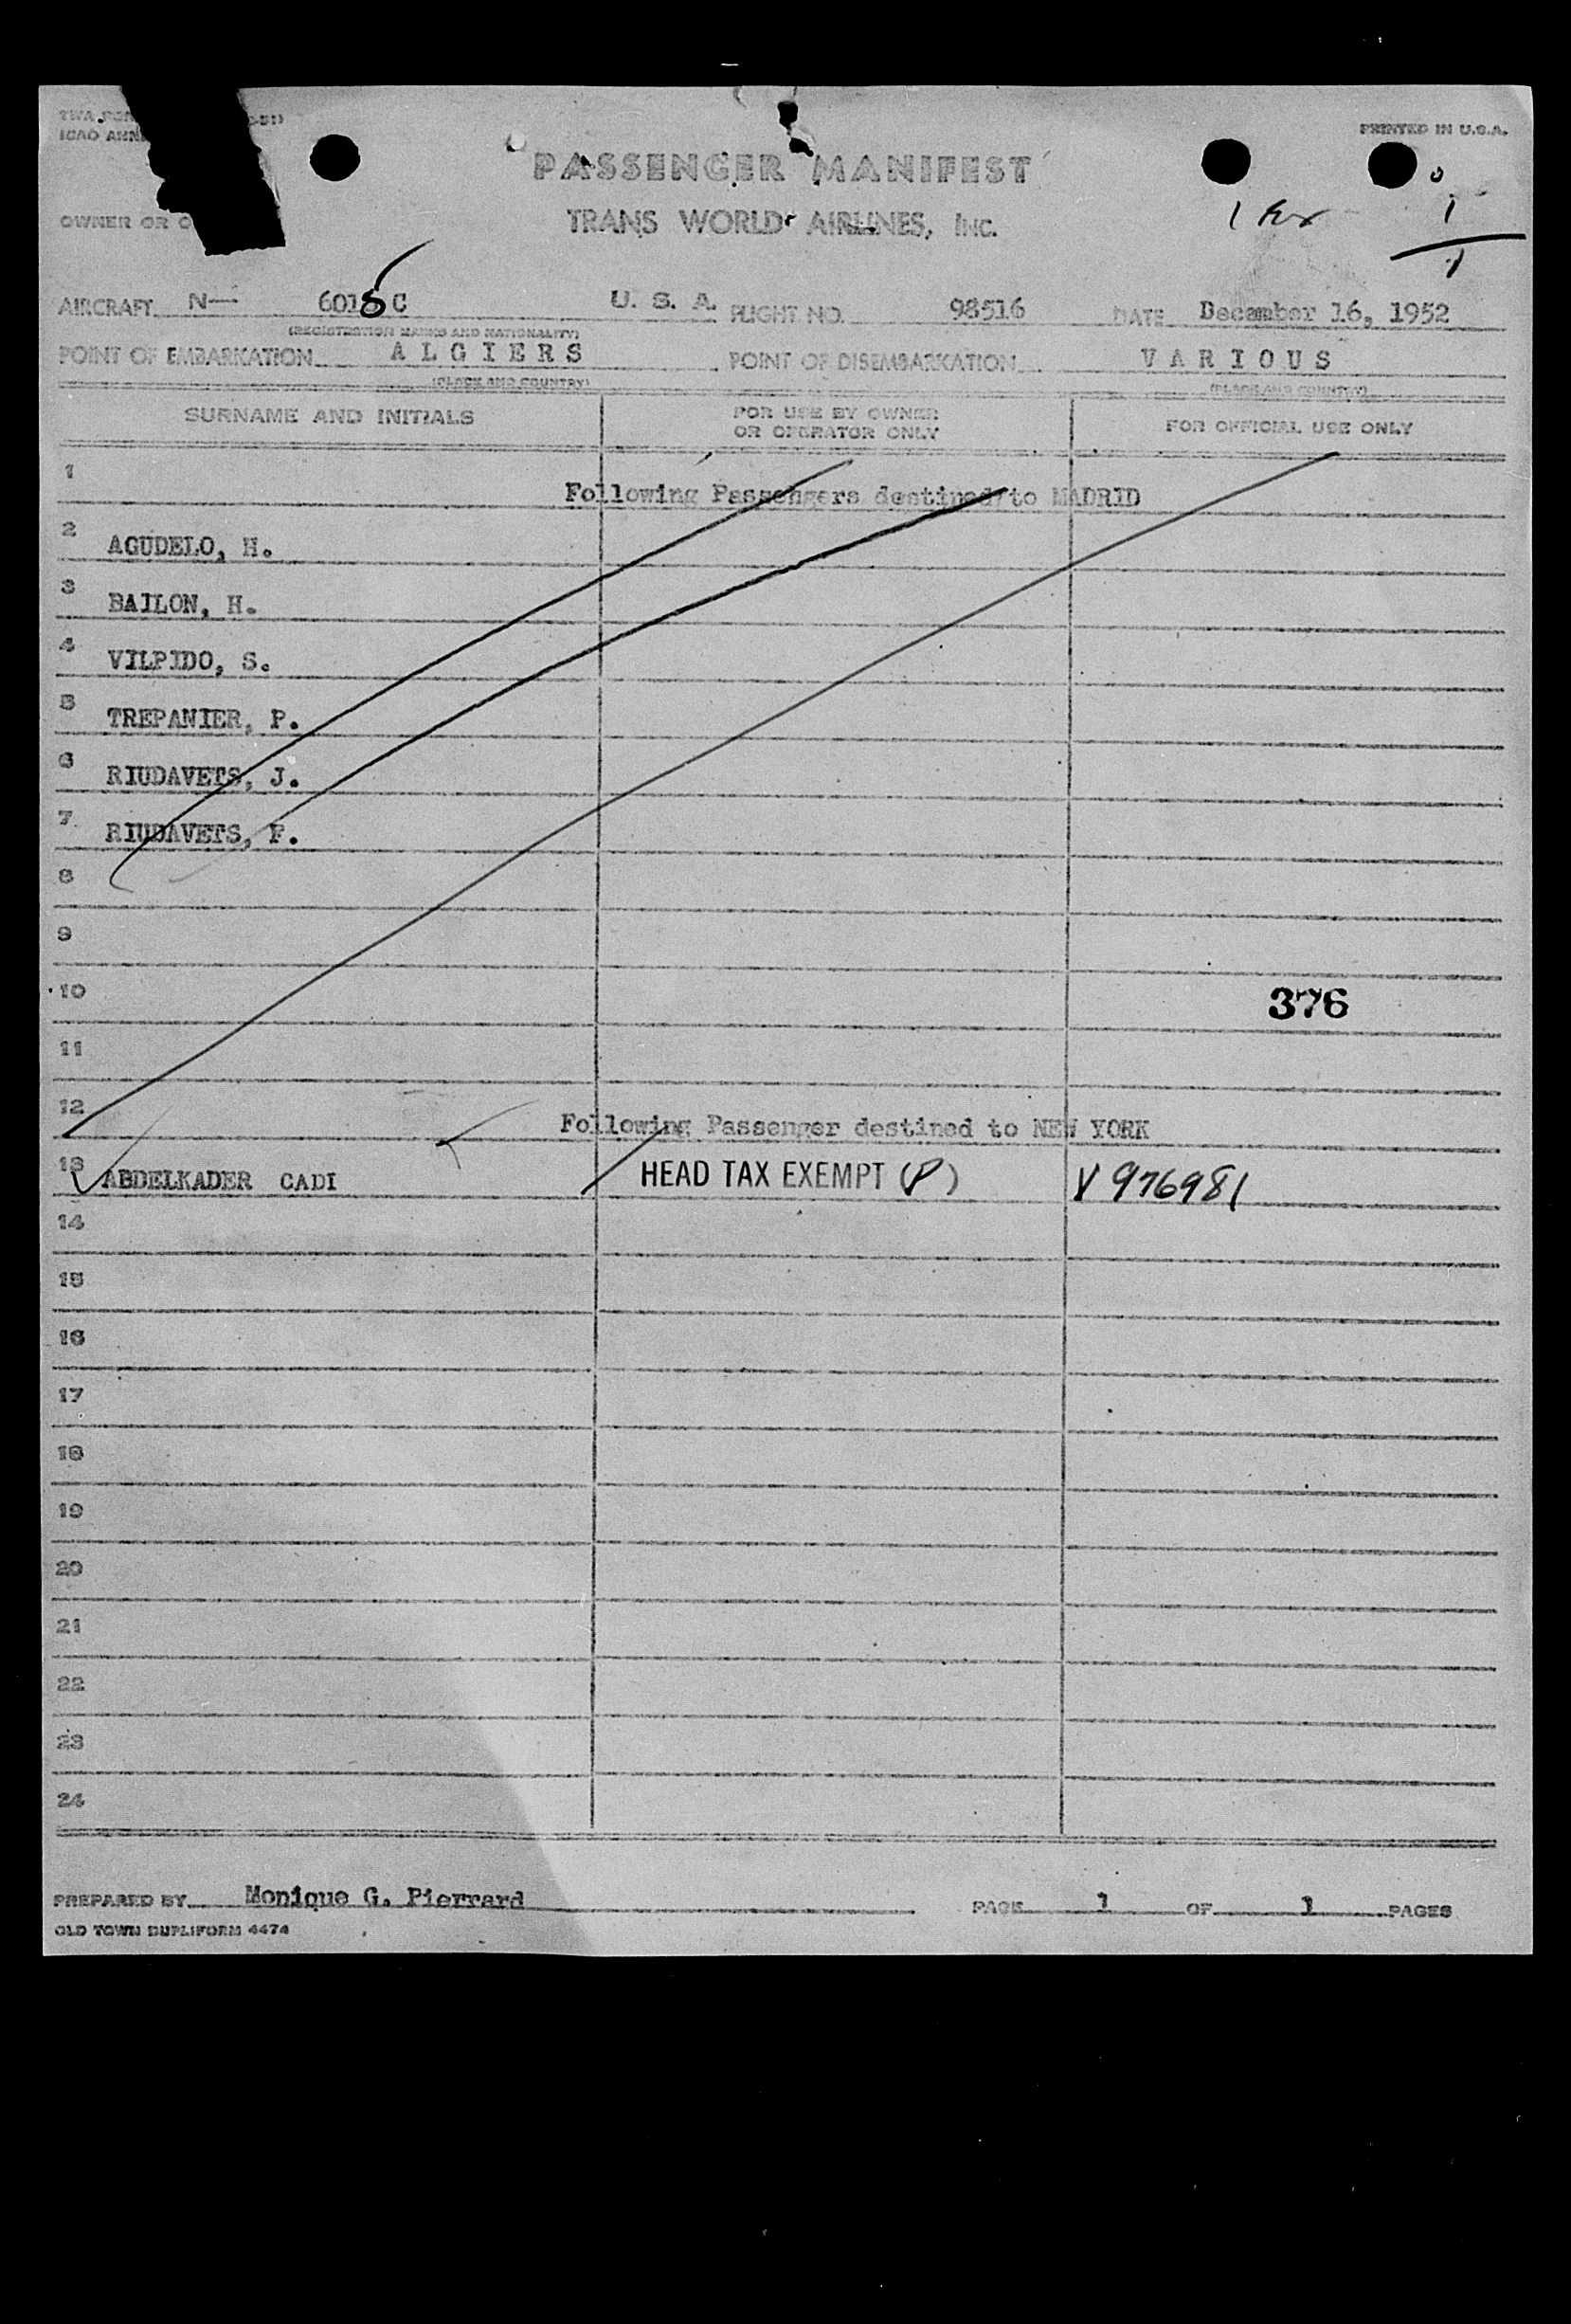 PRINTED IN U.S.A.
ICAO ANN
PASSENGER MANIFEST
OWNER OR O
TRANS WORLD AIRLINES, INC.
1
1
AIRCRAFT N— 601 C U. S. A. FLIGHT NO. 98516 DATE December 16, 1952
(REGISTRATION MARKS AND NATIONALITY)
POINT OF EMBARKATION ALGIERS POINT OF DISEMBARKATION VARIOUS
(PLACE AND COUNTRY) (PLACE AND COUNTRY)
SURNAME AND INITIALS FOR USE BY OWNER OR OPERATOR ONLY FOR OFFICIAL USE ONLY
1 Following Passengers destined to MADRID
2 AGUDELO, H.
3 BAILON, H.
4 VILPIDO, S.
5 TREPANIER, P.
6 RIUDAVETS, J.
7 RIUDAVETS, F.
8
9
10 376
11
12 Following Passenger destined to NEW YORK
13 ABDELKADER CADI HEAD TAX EXEMPT (P) V 976981
14
15
16
17
18
19
20
21
22
23
24
PREPARED BY Monique G. Pierrard PAGE 1 OF 1 PAGES
OLD TOWN DUPLIFORM 4474